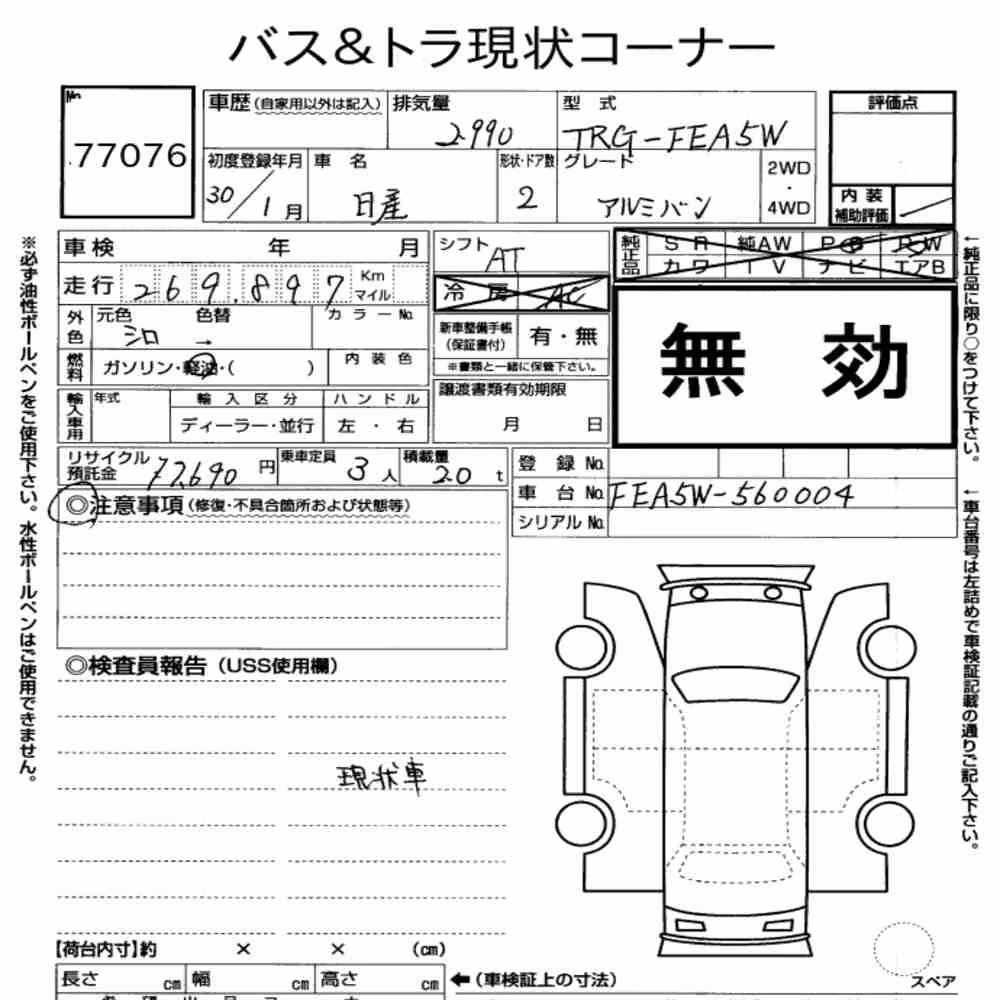 バス&トラ現状コーナー
No. 77076
車歴(自家用以外は記入)
排気量 2.990
型 式 TRG-FEA5W
評価点
初度登録年月 30/1月
車 名 日産
形状・ドア数 2
グレード アルミバン
2WD
・
4WD
内 装
補助評価
車 検 年 月
シフト AT
純正品 SR 純AW PS PW
カワ TV ナビ エアB
走行 269.897 Km
マイル
冷 房 AC
外色 元色 シロ 色替 →
カラーNo.
新車整備手帳
(保証書付)
有・無
※書類と一緒に保管下さい。
燃料 ガソリン・軽油・( )
内 装 色
無 効
輸入車用 年式
輸 入 区 分
ディーラー・並行
ハ ン ド ル
左 ・ 右
譲渡書類有効期限
月 日
リサイクル
預託金 77,690 円
乗車定員 3人
積載量 2.0 t
登 録 No.
車 台 No. FEA5W-560004
シリアル No.
◎注意事項(修復・不具合箇所および状態等)
◎検査員報告(USS使用欄)
現状車
【荷台内寸】約 × × (cm)
長さ cm 幅 cm 高さ cm
←(車検証上の寸法)
スペア
※必ず油性ボールペンをご使用下さい。水性ボールペンはご使用できません。
←純正品に限り○をつけて下さい。
←車台番号は左詰めで車検証記載の通りご記入下さい。